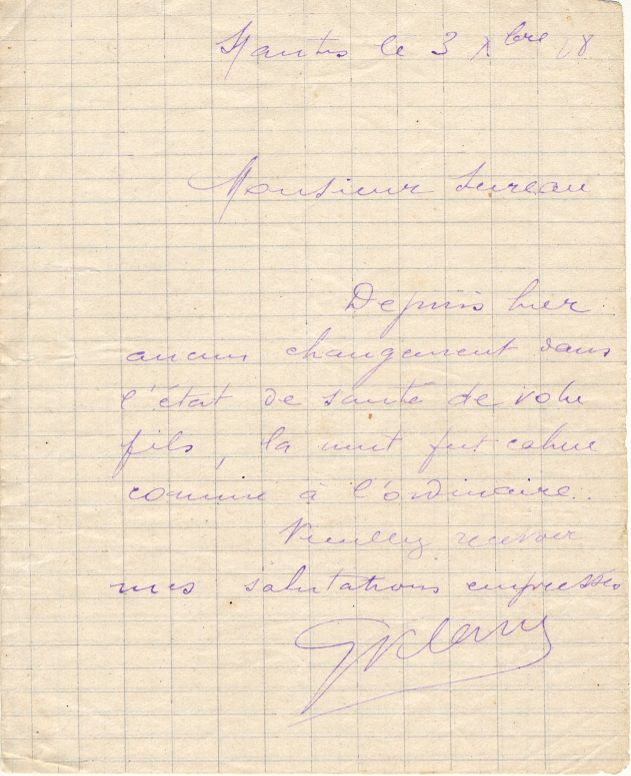 Nantes le 3 Xbre 18
Monsieur Lureau
Depuis hier
aucun changement dans
l'état de santé de votre
fils, la nuit fut calme
comme à l'ordinaire.
Veuillez recevoir
mes salutations empressées